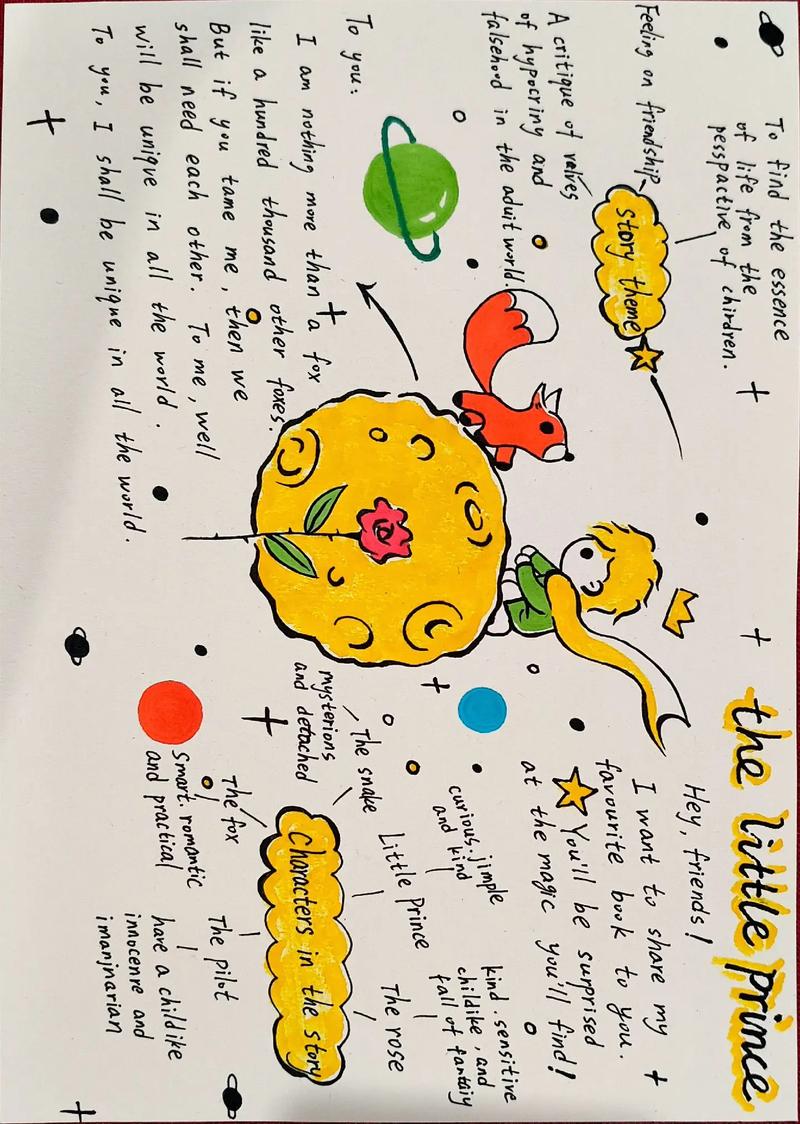 the little prince
Hey, friends!
I want to share my
favourite book to you.
You'll be surprised
at the magic you'll find!
To find the essence
of life from the
pesspactive of chirdren.
story theme
Feeling on friendship
A critique of valves
of hypocriny and
falsehord in the aduit world.
To you:
I am nothing more than a fox
like a hundred thousand other foxes.
But if you tame me, then we
shall need each other. To me, well
will be unique in all the world.
To you, I shall be unique in all the world.
Characters in the story
Little Prince
curious. jimple
and kind
The rose
kind. sensitive
childike, and
fall of fantaiy
The snake
mysterions
and detached
The fox
Smart. romantic
and practical
The pilot
have a childike
innocenre and
imanjnarian